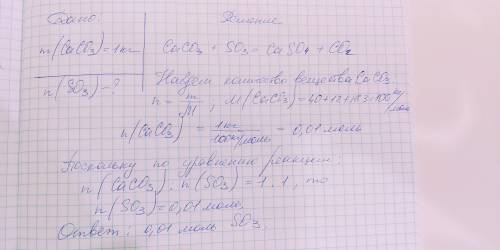 Дано:
Решение
m(CaCO3)=1кг
CaCO3 + SO3 = CaSO4 + CO2
n(SO3)-?
Найдем количество вещества CaCO3
n = m/M, M(CaCO3)=40+12+16·3=100 кг/моль
n(CaCO3) = 1кг/100кг/моль = 0,01 моль
Поскольку по уравнению реакции:
n(CaCO3) : n(SO3) = 1:1, то
n(SO3)=0,01 моль.
Ответ: 0,01 моль SO3.